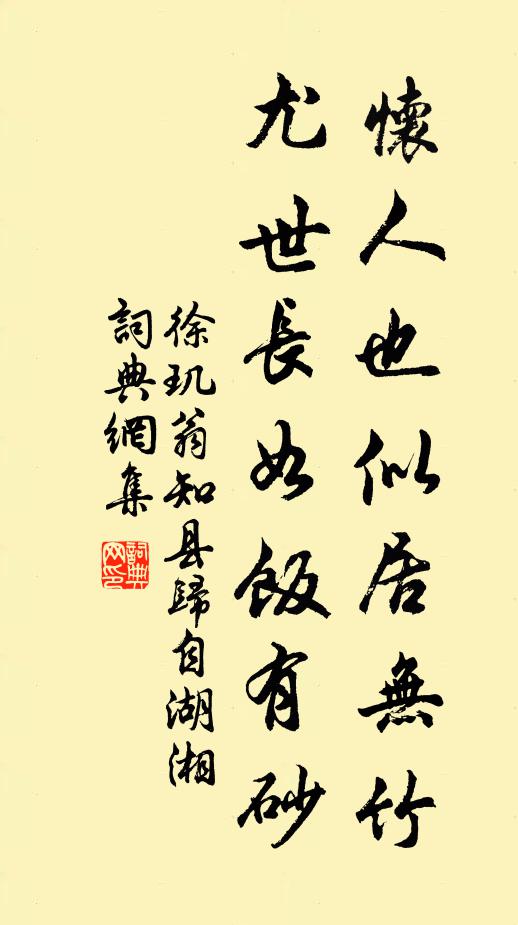 懷人也似居無竹
尤世長如飯有砂
徐玑翁知县歸自湖湘
詞典網集
詞典
网印